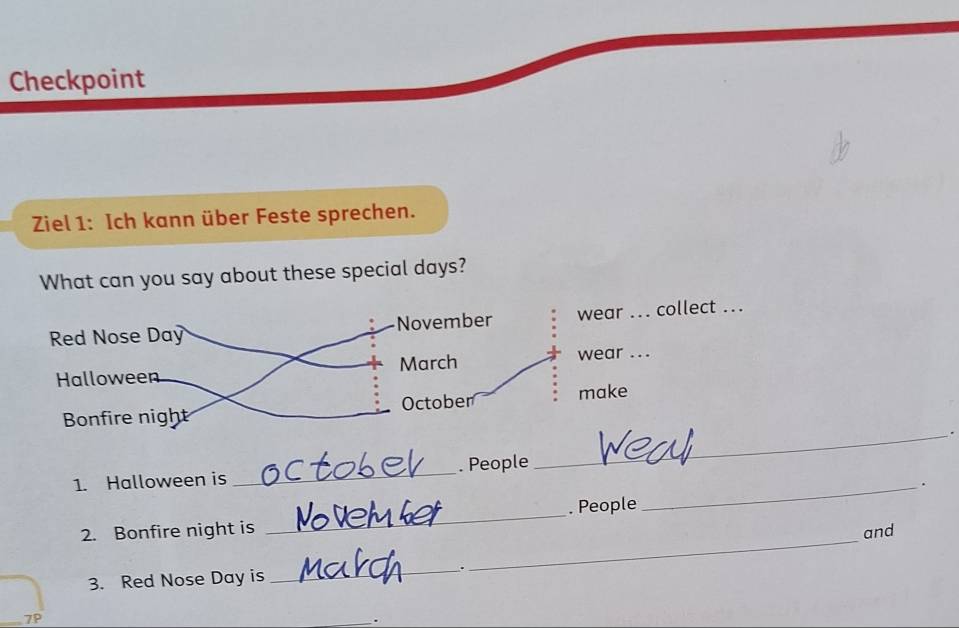 Checkpoint
Ziel 1: Ich kann über Feste sprechen.
What can you say about these special days?
Red Nose Day November wear ... collect ...
Halloween March wear ...
Bonfire night October make
1. Halloween is october. People Wear.
2. Bonfire night is November. People ____.
3. Red Nose Day is March. ____ and
____.
7P